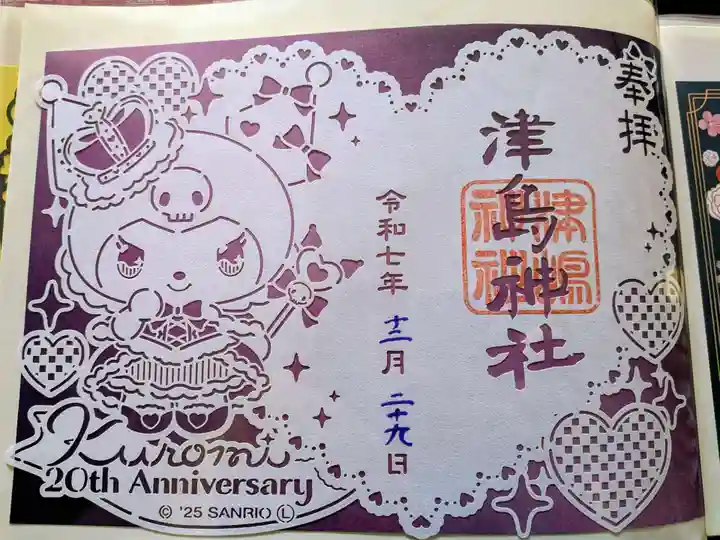 奉拝
津島神社
津島神社
令和七年 十二月 二十九日
Kuromi
20th Anniversary
© '25 SANRIO Ⓛ